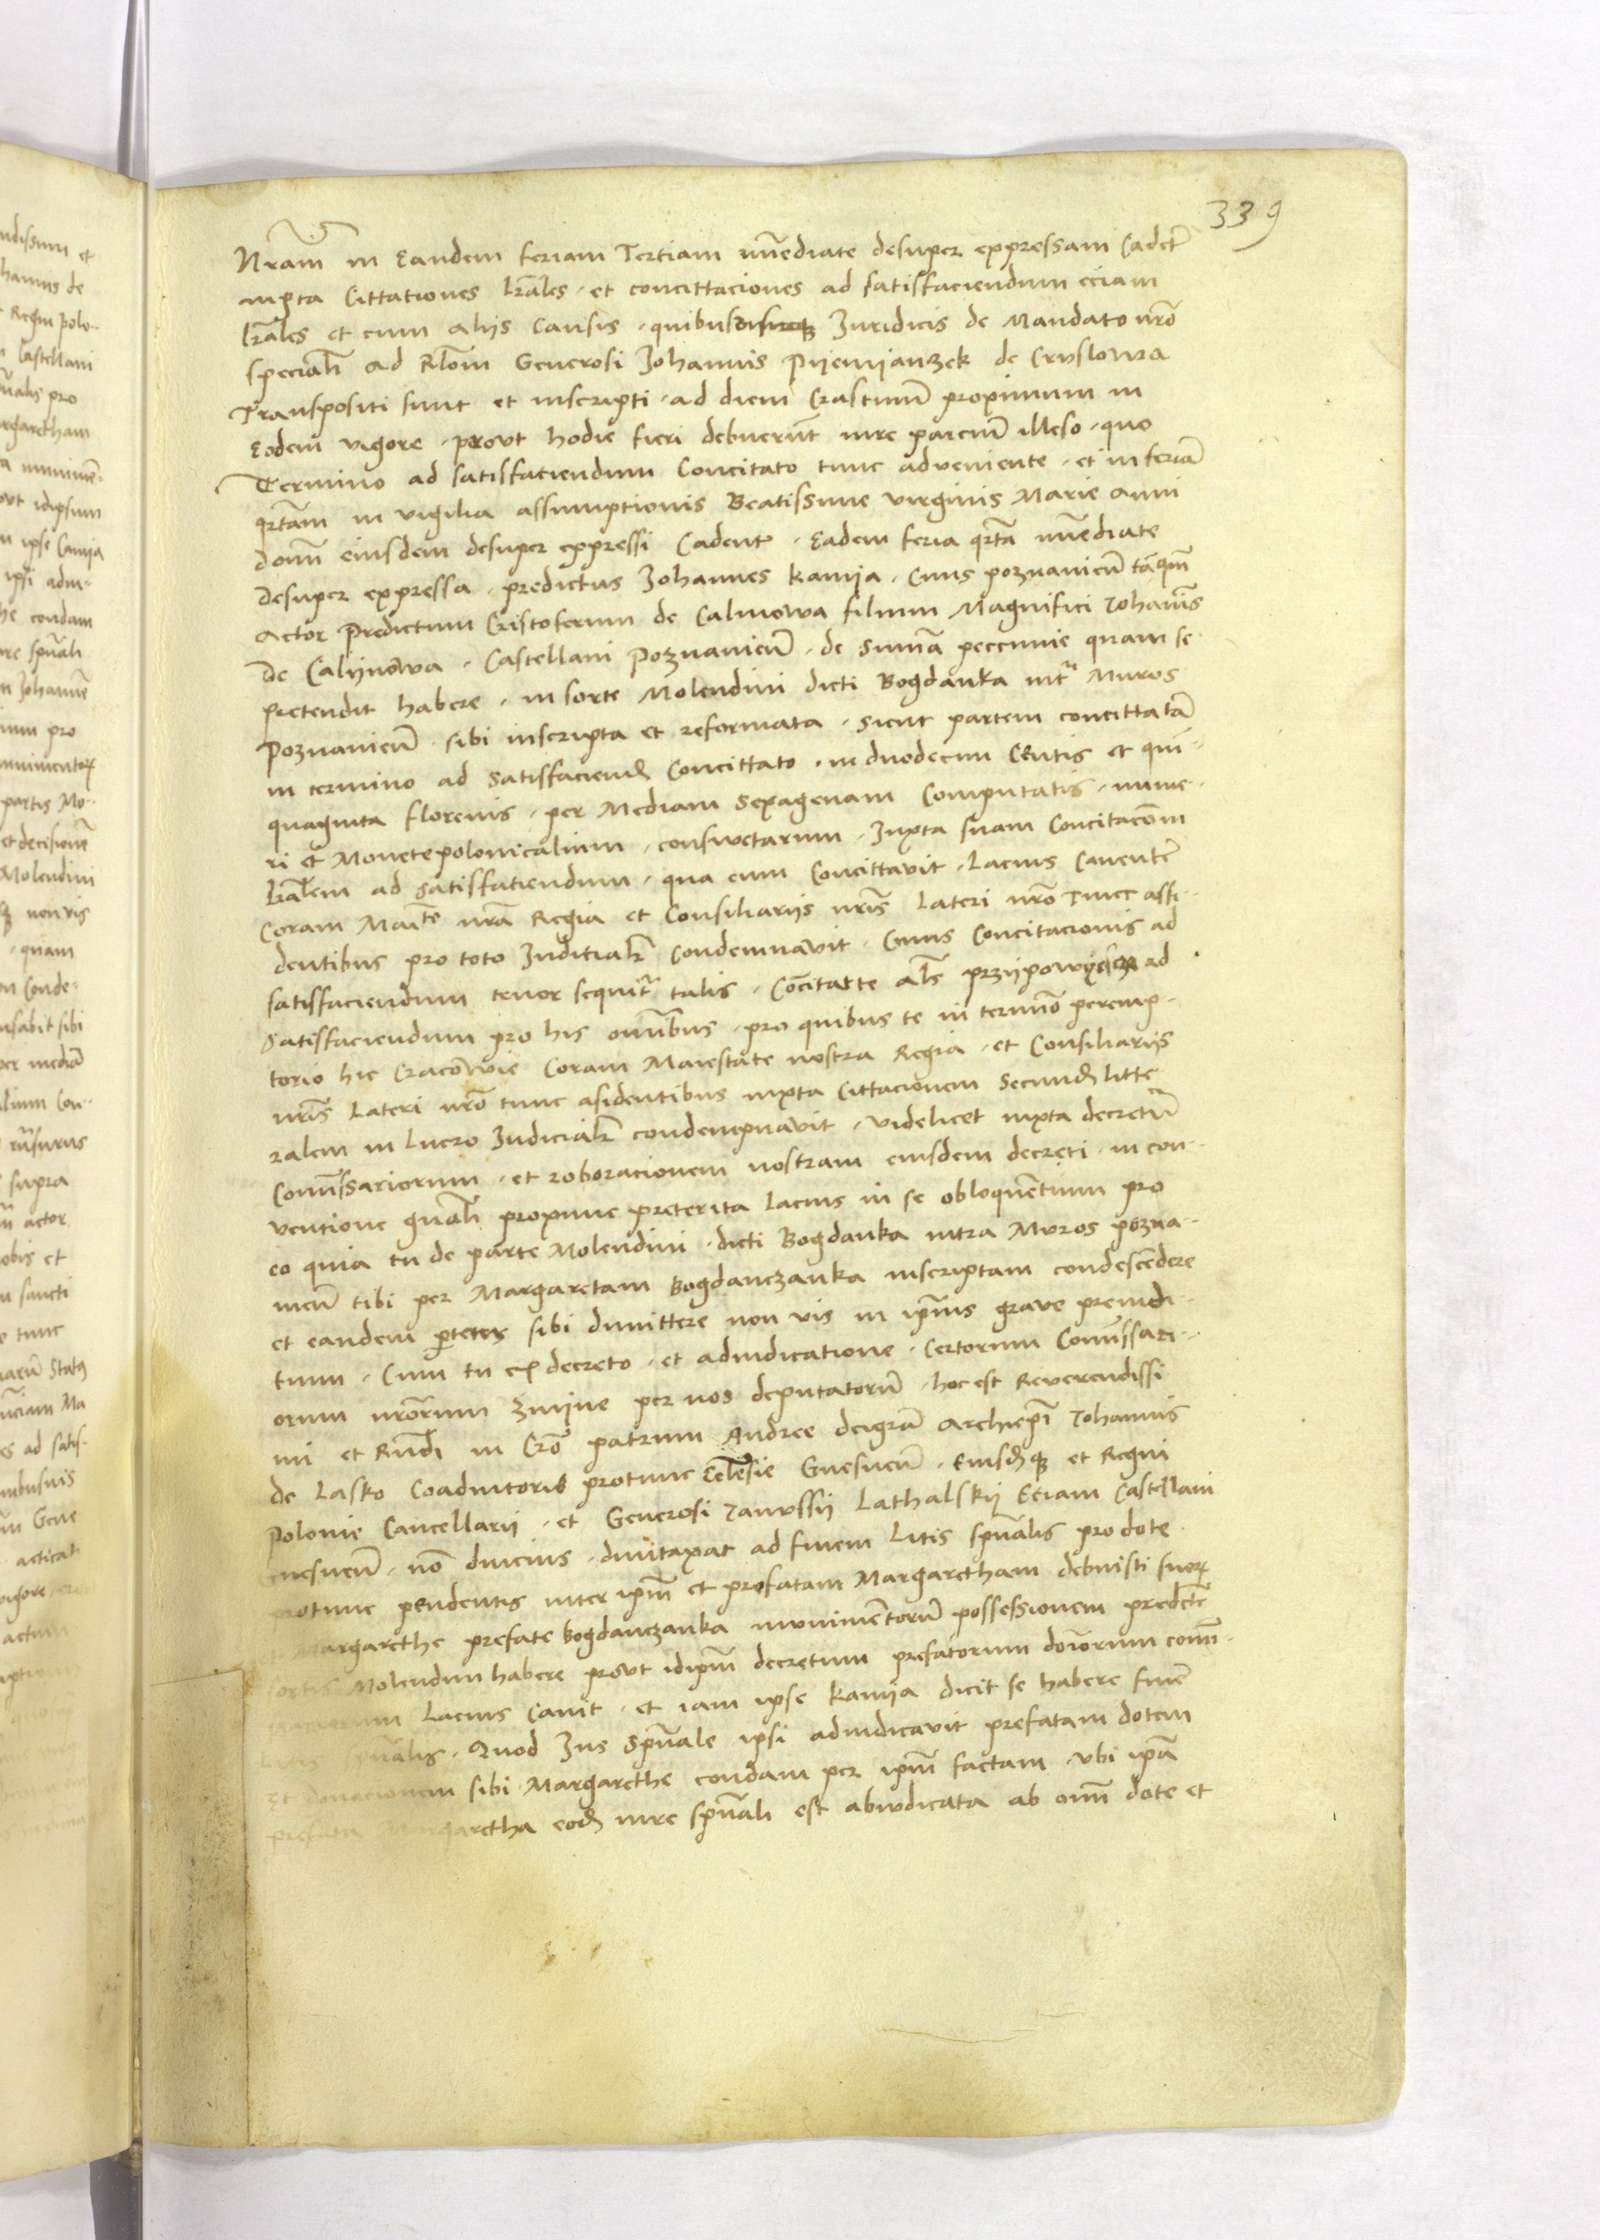 339
Nram in Eandem feriam Tertiam immediate desuper expressam Cadentem
iuxta Cittationes lrales · et concittaciones ad satisfaciendum eciam
lrales et cum alijs Causis · quibus Juridicis de Mandato nro
speciali ad Rlom Generosi Johannis Pyenyanzek de Crvslowa
Transpositi sunt et inscripti · ad diem Crastinum proximum in
Eodem vigore · provt hodie fieri debuerunt iure parcium illeso · quo
Termino ad satisfaciendum Concitato tunc adveniente · et in feriam
qrtam in vigilia assumptionis Beatissime virginis Marie anni
domini eiusdem desuper expressi Cadente · Eadem feria qrta immediate
desuper expressa · predictus Johannes Kamija · Civis poznaniensis tamquam
Actor Predictum Cristoferum de Calinowa filium Magnifici Johannis
De Calijnowa · Castellani Poznaniensis · de summa peccunie quam se
pretendit habere · in sorte Molendini dicti Bogdanka intra Muros
Poznaniensis · sibi inscripta et reformata · sicut partem concittatam
in termino ad satisfaciend Concittato · in duodecim Centis et quin-
quaginta florenis · per Mediam sexagenam Computatis · nume-
ri et Monete polonicalium · consuetarum · Juxta suam Concitacionem
lralem ad satisfatiendum · qua eum Concittavit · Lacius Caventem
Coram Maiestate nra Regia et Consiliarijs nris Lateri nro Tunc assi-
dentibus pro toto Inditialiter Condemnavit · Cuius Concitacionis ad
satisfaciendum tenor sequitur talis · Concitat te als przijpowyesza ad
satisfaciendum pro his omnibus · pro quibus te in termino peremp-
torio hic Cracowie Coram Maiestate nostra Regia · et Consiliariis
nris Lateri nro tunc asidentibus iuxta Cittacionem Secundam litte-
ralem in Lucro Iudicialiter condempnavit · videlicet iuxta decretum
Commissariorum · et roboracionem nostram eiusdem decreti · in con-
ventione gnali proxime preterita lacius in se obloquentium pro
eo quia tu de parte Molendini · dicti Bogdanka intra Mvros pozna-
niensis tibi per Margaretam Bogdanczanka inscriptam condescendere
et eandem sibi dimittere non vis in ipsius grave preiudi-
tium · Cum tu ex decreto · et adiudicatione · Certorum Commissari-
orum nrorum Znijne per nos deputatorum · hoc est Reverendissi
mi et Rndi in Cro patrum Andree dei gra Archiepi Johannis
de Lasko Coadiutoris protunc Ecclesie Gnesnensis · Eiusdemque et Regni
Polonie Cancellarii · et Generosi Janvssii Lathalskij Eciam Castellani
Gnesnensis · non diucius · dumtaxat ad finem Litis spualis pro dote
protunc pendentis inter ipsum et prefatam Margaretham debuisti suorum
Margarethe prefate Bogdanczanka munimentorum possessionem predicte
sortis Molendini habere provt idipsum decretum prefatorum dominorum comm-
issariorum Lacius Canit · et iam ipse Kamija dicit se habere finem
Litis spualis · Quod Jus Spuale ipsi adiudicavit prefatam dotem
et donacionem sibi Margarethe condam per ipsum factam · vbi ipsa
prefata Margaretha eodem iure spuali est abiudicata ab omni dote et